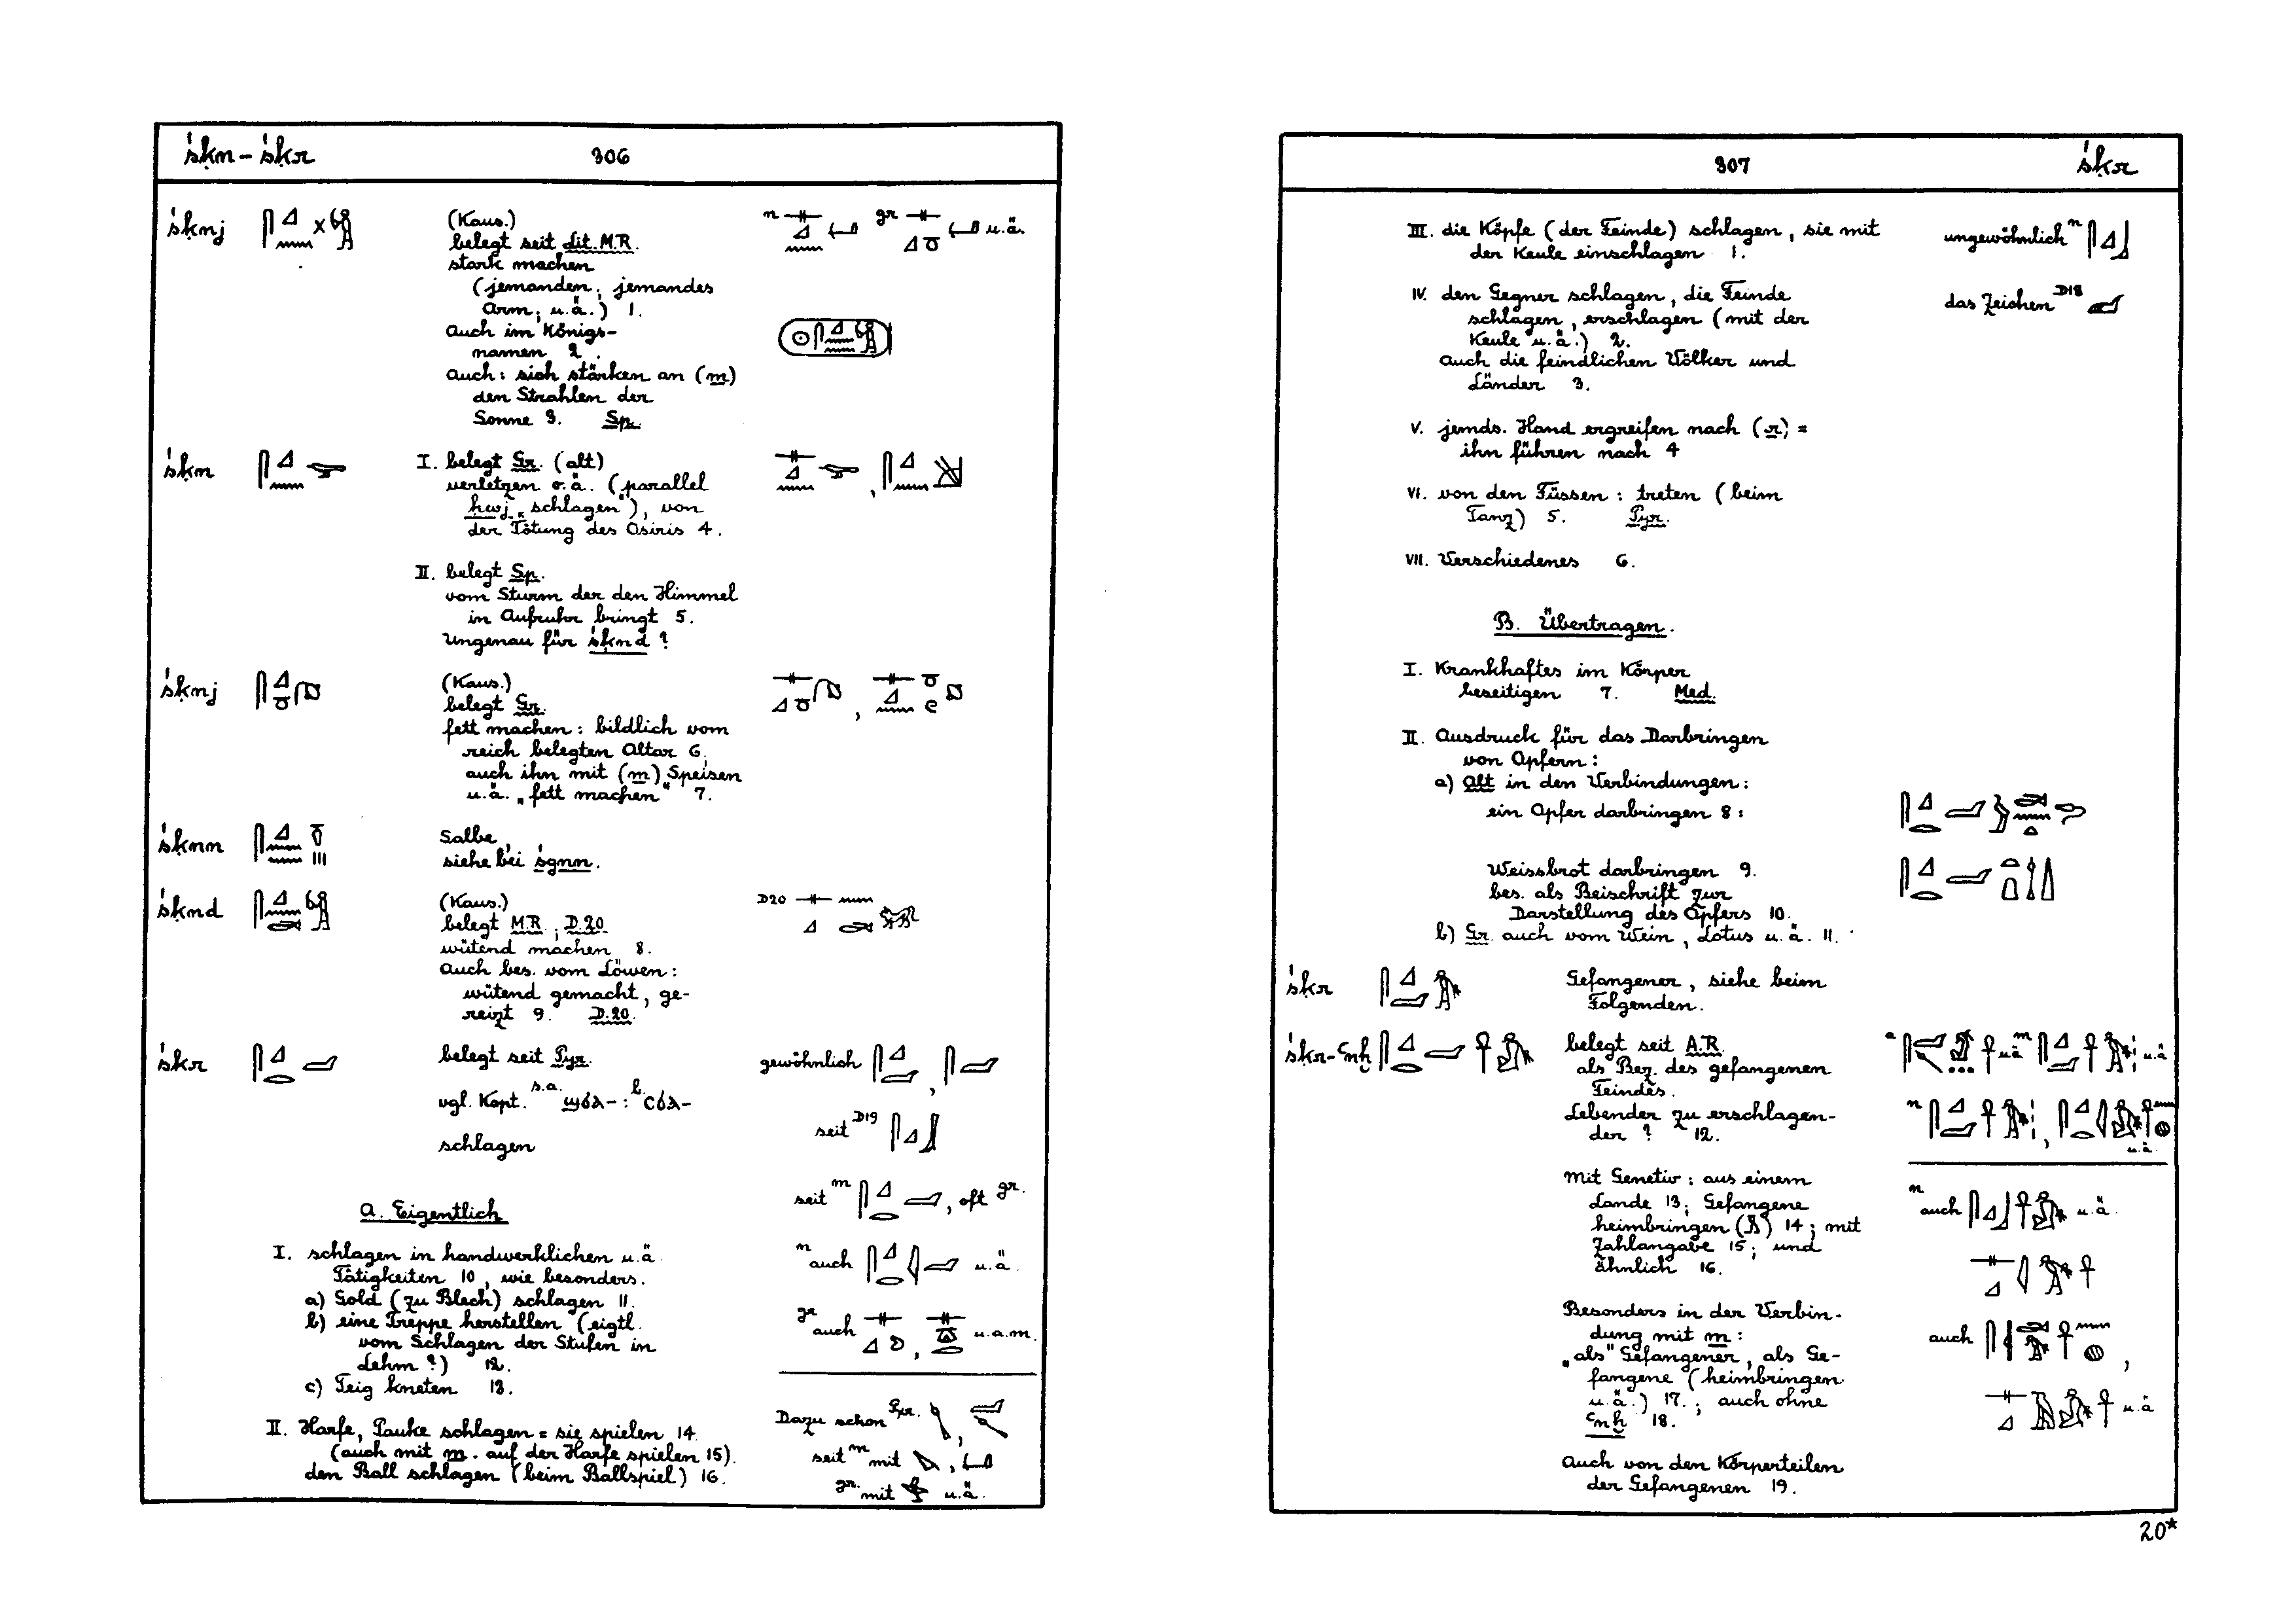 śḳn - śḳr 306
śḳnj (Kaus.)
belegt seit Lit. M.R.
stark machen
(jemanden; jemandes
Arm; u.ä.) 1.
Auch im Königs-
namen 2.
Auch: sich stärken an (m)
den Strahlen der
Sonne 3. Sp.
n gr u.ä.
śḳn I. belegt Gr. (alt)
verletzen o.ä. (parallel
ḥwj „schlagen"), von
der Tötung des Osiris 4.
II. belegt Sp.
vom Sturm der den Himmel
in Aufruhr bringt 5.
Ungenau für śḳnd ?
śḳnj (Kaus.)
belegt Gr.
fett machen: bildlich vom
reich belegten Altar 6.
auch ihn mit (m) Speisen
u.ä. „fett machen" 7.
śḳnn Salbe,
siehe bei śgnn.
śḳnd (Kaus.)
belegt M.R.; D.20.
wütend machen 8.
Auch bes. vom Löwen:
wütend gemacht, ge-
reizt 9. D.20.
D20
śḳr belegt seit Pyr.
vgl. Kopt. s.a. ϣϭⲗ- : b. ⲥϭⲗ-
schlagen
gewöhnlich
seit D19
seit m , oft gr.
n auch u.ä.
gr auch , u.a.m.
Dazu schon Pyr. ,
seit m mit ,
gr. mit u.ä.
A. Eigentlich
I. schlagen in handwerklichen u.ä.
Tätigkeiten 10, wie besonders.
a) Gold (zu Blech) schlagen 11.
b) eine Treppe herstellen (eigtl.
vom Schlagen der Stufen in
Lehm ?) 12.
c) Teig kneten 13.
II. Harfe, Pauke schlagen = sie spielen 14.
(auch mit m. auf der Harfe spielen 15).
den Ball schlagen (beim Ballspiel) 16.
307 śḳr
III. die Köpfe (der Feinde) schlagen, sie mit
der Keule einschlagen 1.
ungewöhnlich n
IV. den Gegner schlagen, die Feinde
schlagen, erschlagen (mit der
Keule u.ä.) 2.
auch die feindlichen Völker und
Länder 3.
das Zeichen D18
V. jemds. Hand ergreifen nach (r) =
ihn führen nach 4
VI. von den Füssen: treten (beim
Tanz) 5. Pyr.
VII. Verschiedenes 6.
B. Übertragen.
I. Krankhaftes im Körper
beseitigen 7. Med.
II. Ausdruck für das Darbringen
von Opfern:
a) Alt in den Verbindungen:
ein Opfer darbringen 8:
Weissbrot darbringen 9.
bes. als Beischrift zur
Darstellung des Opfers 10.
b) Gr. auch vom Wein, Lotus u.ä. 11.
śḳr Gefangener, siehe beim
Folgenden.
śḳr-ꜥnḫ belegt seit A.R.
als Bez. des gefangenen
Feindes.
Lebender zu erschlagen-
der ? 12.
a u.ä m u.ä
n , u.ä.
Mit Genetiv: aus einem
Lande 13; Gefangene
heimbringen 14; mit
Zahlangabe 15; und
ähnlich 16.
n auch u.ä.
Besonders in der Verbin-
dung mit m:
„als" Gefangener, als Ge-
fangene (heimbringen
u.ä.) 17.; auch ohne
ꜥnḫ 18.
auch ,
u.ä
Auch von den Körperteilen
der Gefangenen 19.
20*